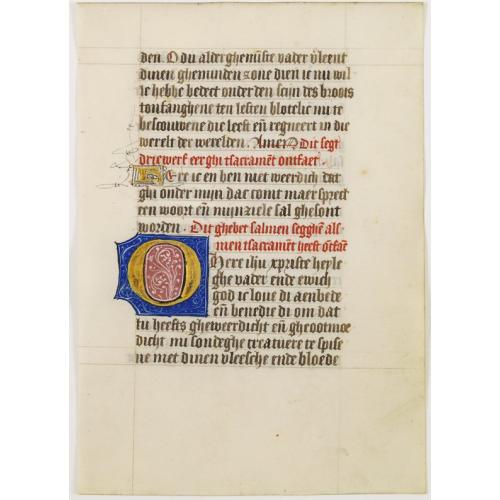 den. O du alder ghemi͂ste vader v̾leent
dinen ghemunden zone dien ic nu wil
ic hebbe bedect onder den scijn des broots
tontfanghene ten lesten blotelic mi te
bescouwene die leeft en̄ regneert in die
werelt der werelden. Amen Dit segt
driewerf eer ghi tsacrament ontfaet
Here ic en ben niet weerdich dat
ghi onder mijn dac comt maer spreect
een woort en̄ mijn ziele sal ghesont
worden. Dit ghebet salmen segghē als
men tsacramēt heeft ōtfaē
O Here ihu xpriste heyle
ghe vader ende ewich
god ic loue di aenbede
en̄ benedie di om dat
tu heefts ghewerdicht en̄ ghootmoe
dicht mi sondeghe creatuere te spise
ne met dinen vleesche ende bloede